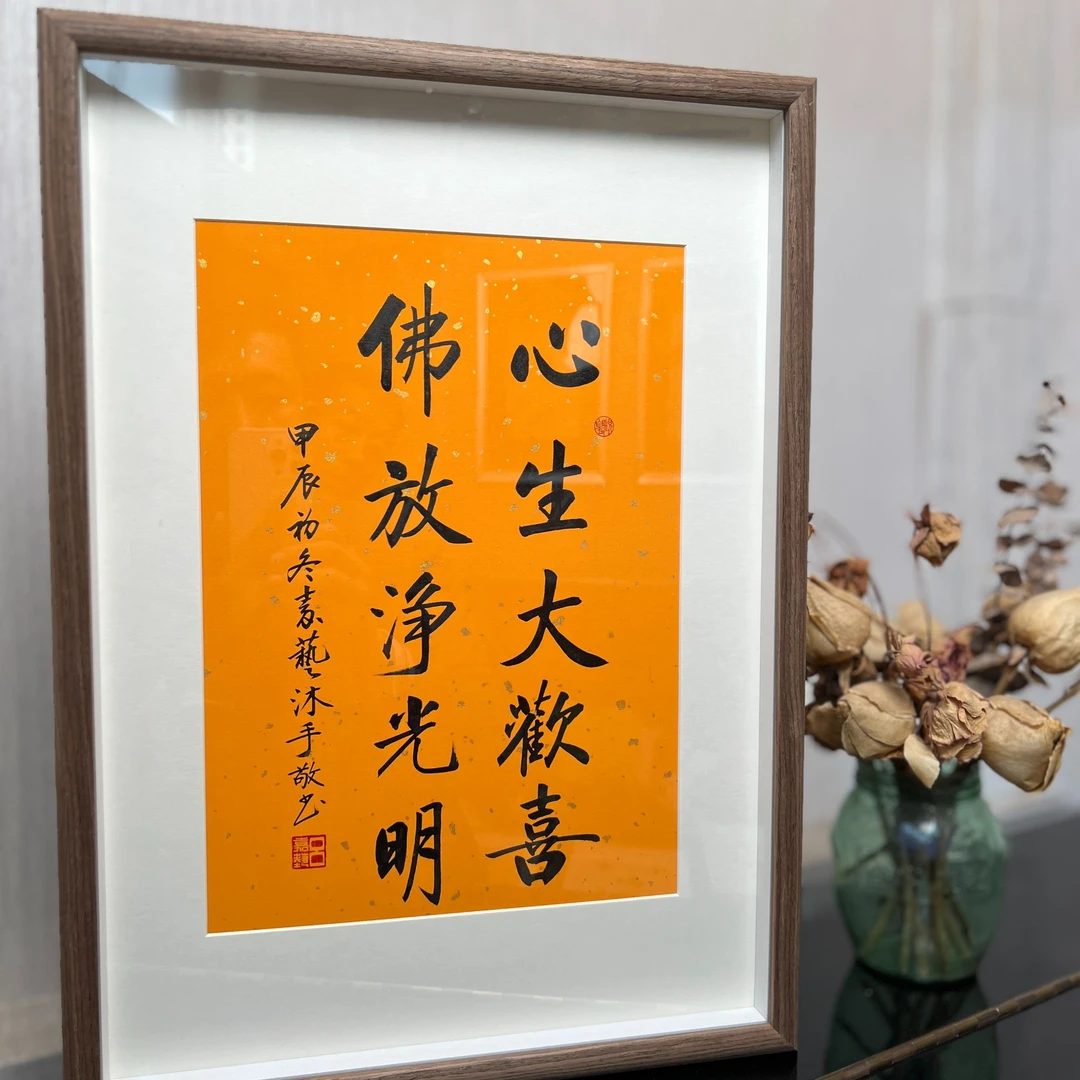 心生大歡喜
佛放淨光明
甲辰初冬嘉藝沐手敬书